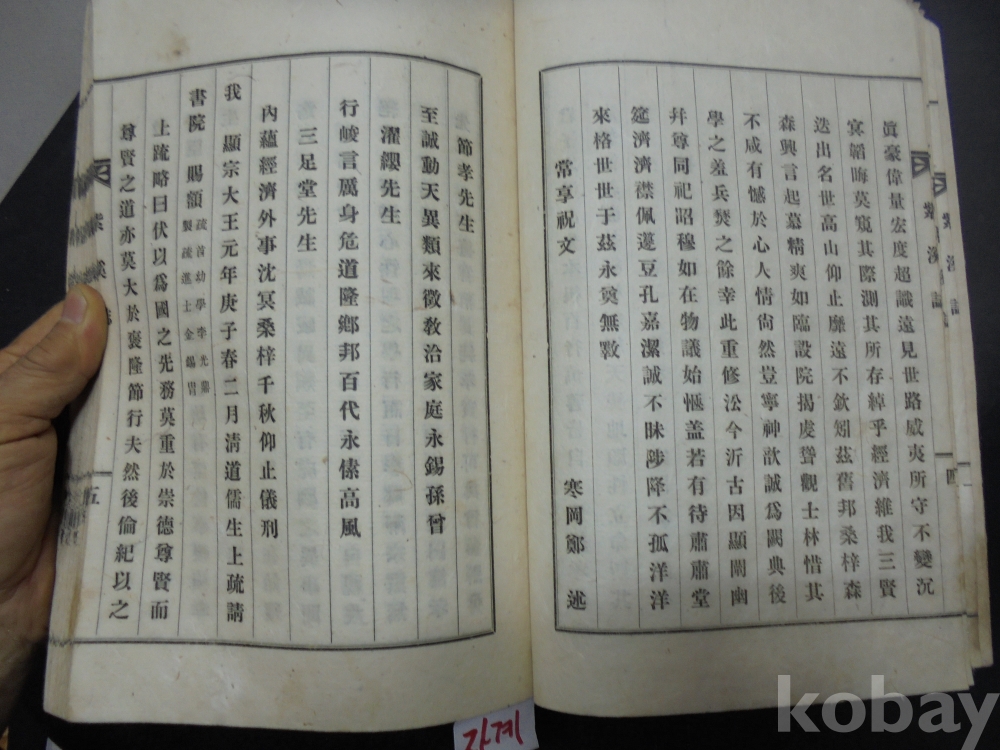 眞豪偉量宏度超識遠見世路威夷所守不變沉
冥韜晦莫窺其際測其所存綽乎經濟維我三賢
迭出名世高山仰止靡遠不欽矧茲舊邦桑梓森
森興言起慕精爽如臨設院揭虔聳觀士林惜其
不咸有憾於心人情尙然豈寧神歆誠爲闕典後
學之羞兵燹之餘幸此重修訟今沂古因顯闡幽
幷尊同祀昭穆如在物議始愜盖若有待肅肅堂
筵濟濟襟佩籩豆孔嘉潔誠不昧陟降不孤洋洋
來格世世于茲永奠無斁
寒岡鄭 述
常享祝文
節孝先生
至誠動天異類來徵敎洽家庭永錫孫曾
濯纓先生
行峻言厲身危道隆鄕邦百代永愫高風
三足堂先生
內蘊經濟外事沈冥桑梓千秋仰止儀刑
我 顯宗大王元年庚子春二月淸道儒生上疏請
書院 賜額
疏首幼學李光鼎
製疏進士金錫胄
上疏略曰伏以爲國之先務莫重於崇德尊賢而
尊賢之道亦莫大於褒隆節行夫然後倫紀以之
紫溪誌
四
五
가계
kobay